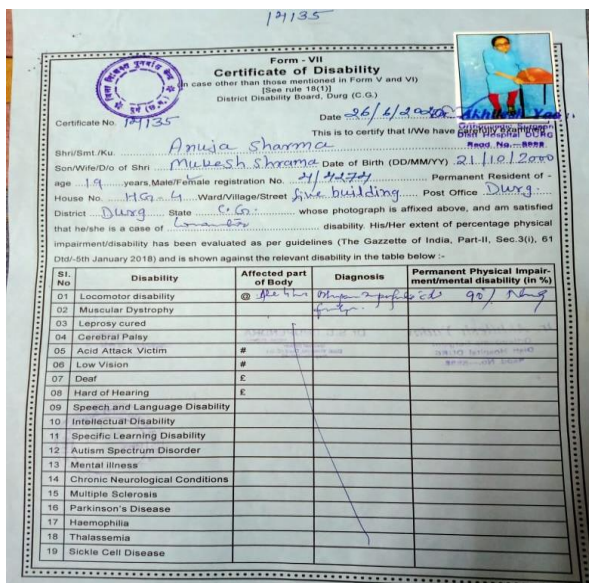 14135
Form - VII
Certificate of Disability
(In case other than those mentioned in Form V and VI)
[See rule 18(1)]
District Disability Board, Durg (C.G.)
Certificate No. 14135 Date 26/6/2020
Akhilesh Yadav
Orthopaedic Surgeon
Dist Hospital DURG
This is to certify that I/We have carefully examined
Shri/Smt./Ku. Anuja Sharma
Son/Wife/D/o of Shri Mukesh Shrama Date of Birth (DD/MM/YY) 21/10/2000
age 19 years, Male/Female registration No. 4/4274 Permanent Resident of -
House No. HG-4 Ward/Village/Street five building Post Office Durg.
District Durg State C.G. whose photograph is affixed above, and am satisfied
that he/she is a case of disability. His/Her extent of percentage physical
impairment/disability has been evaluated as per guidelines (The Gazzette of India, Part-II, Sec.3(i), 61
Dtd/-5th January 2018) and is shown against the relevant disability in the table below :-
Sl. No Disability Affected part of Body Diagnosis Permanent Physical Impairment/mental disability (in %)
01 Locomotor disability @ 90%
02 Muscular Dystrophy
03 Leprosy cured
04 Cerebral Palsy
05 Acid Attack Victim #
06 Low Vision #
07 Deaf £
08 Hard of Hearing £
09 Speech and Language Disability
10 Intellectual Disability
11 Specific Learning Disability
12 Autism Spectrum Disorder
13 Mental illness
14 Chronic Neurological Conditions
15 Multiple Sclerosis
16 Parkinson's Disease
17 Haemophilia
18 Thalassemia
19 Sickle Cell Disease